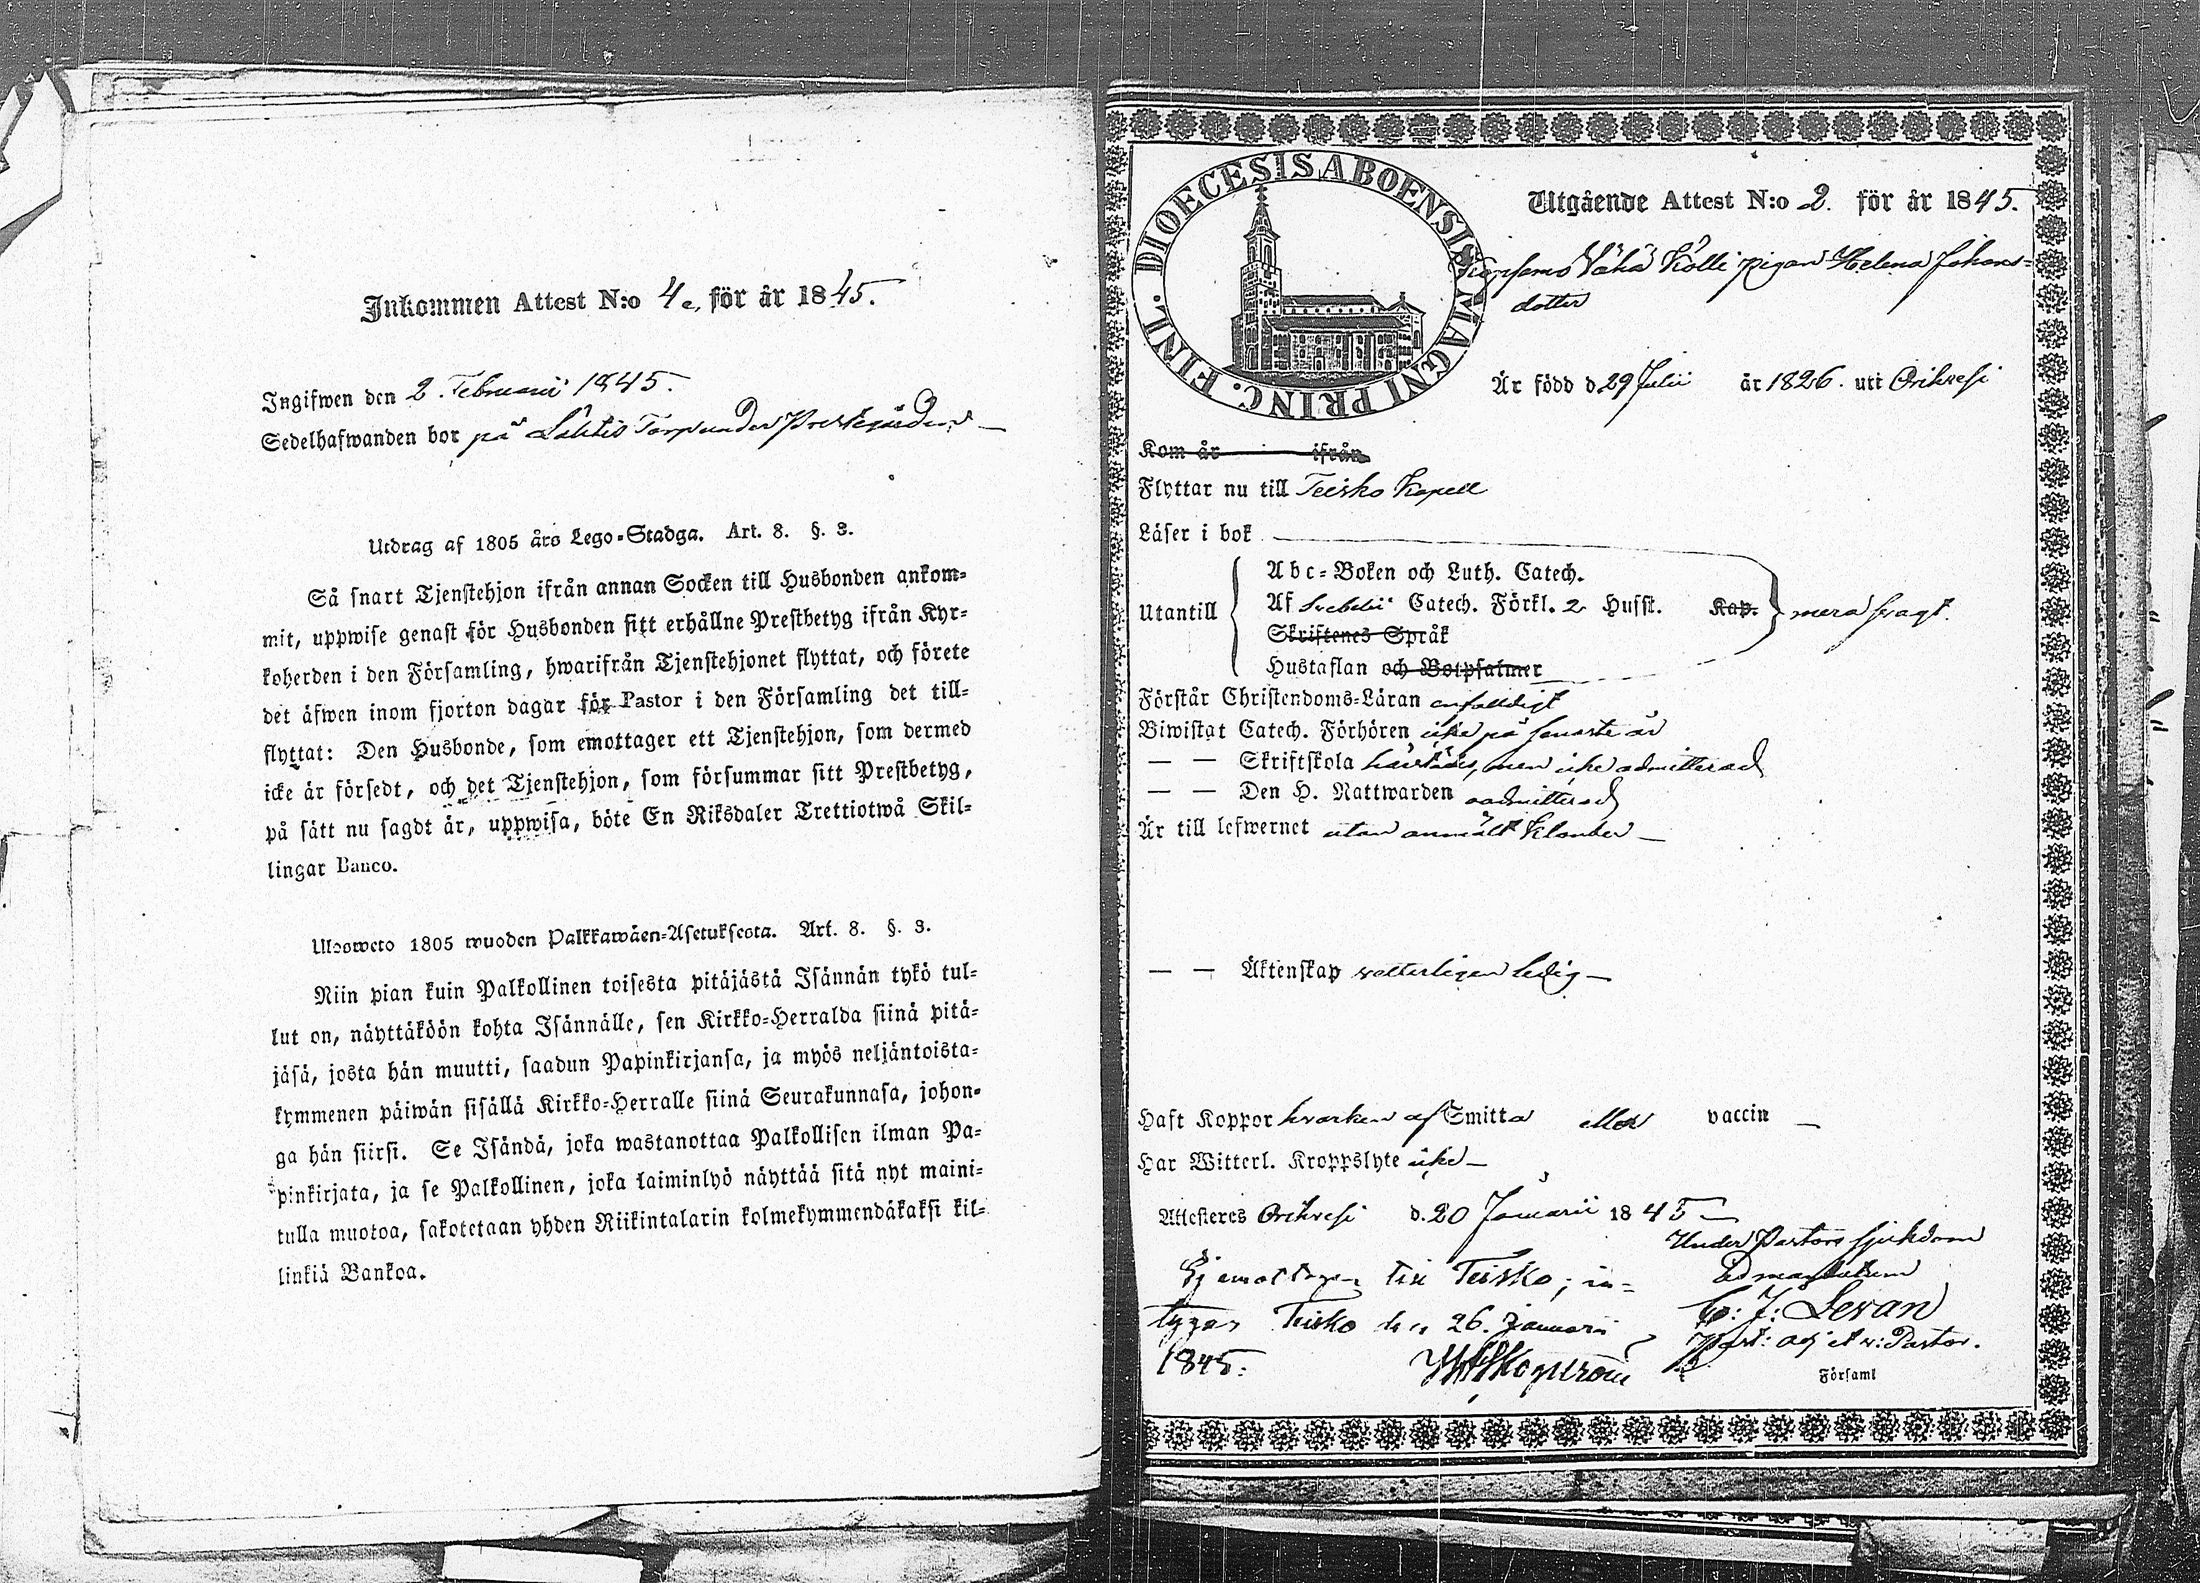 Inkommen Attest N:o 4 för år 1845.
Ingifwen den 2. Februarii 1845.
Sedelhafwanden bor på Lahtis Torp under Prestegården
Utdrag af 1805 års Lego-Stadga. Art. 8. §. 3.
Så snart Tjenstehjon ifrån annan Socken till Husbonden ankom-
mit, uppwise genast för Husbonden sitt erhållne Prestbetyg ifrån Kyr-
koherden i den Församling, hwarifrån Tjenstehjonet flyttat, och förete
det äfwen inom fjorton dagar för Pastor i den Församling det till-
flyttat: Den Husbonde, som emottager ett Tjenstehjon, som dermed
icke är försedt, och det Tjenstehjon, som försummar sitt Prestbetyg,
på sätt nu sagdt är, uppwisa, böte En Riksdaler Trettiotwå Skil-
lingar Banco.
Ulosweto 1805 wuoden Palkkawäen-Asetuksesta. Art. 8. §. 3.
Niin pian kuin Palkollinen toisesta pitäjästä Isännän tykö tul-
lut on, näyttäköön kohta Isännälle, sen Kirkko-Herralda siinä pitä-
jäsä, josta hän muutti, saadun Papinkirjansa, ja myös neljäntoista-
kymmenen päiwän sisällä Kirkko-Herralle siinä Seurakunnasa, johon-
ga hän siirsi. Se Isändä, joka wastanottaa Palkollisen ilman Pa-
pinkirjata, ja se Palkollinen, joka laiminlyö näyttää sitä nyt maini-
tulla muotoa, sakotetaan yhden Riikintalarin kolmekymmendäkaksi kil-
linkiä Bankoa.
DIOECESIS ABOENSIS MAGNI PRINC. FINL.
Utgående Attest N:o 2. för år 1845.
Wähä Kölli pigan Helena Johans-
dotter
Är född d 29 Julii år 1826. uti Orihvesi
Kom år ifrån
Flyttar nu till Teisko Kapell
Läser i bok
Abc-Boken och Luth. Catech.
Utantill Af Svebelii Catech. Förkl. 2 Husst. Kap. mera svagt.
Skriftenes Språk
Hustaflan och Botpsalmer
Förstår Christendoms-Läran enfaldigt
Biwistat Catech. Förhören icke på senaste år
— — Skriftskola men icke admitterad
— — Den H. Nattwarden oadmitterad
Är till lefwernet utan anmält klander —
— — Äktenskap vetterligen ledig —
Haft Koppor hvarken af Smitta eller vaccin —
Har Witterl. Kroppslyte icke —
Attesteres Orihvesi d. 20 Januarii 1845
Under Pastors sjukdom
Ej emottagen till Teisko; in- Ad mandatum
tygar Teisko den 26. Januari C: J: Levan
1845. Past: adj et v: Pastor.
Församl